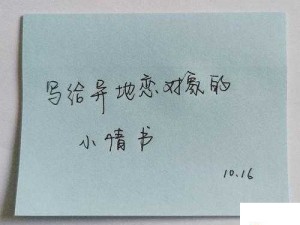 写给异地恋对象的
小情书
10.16